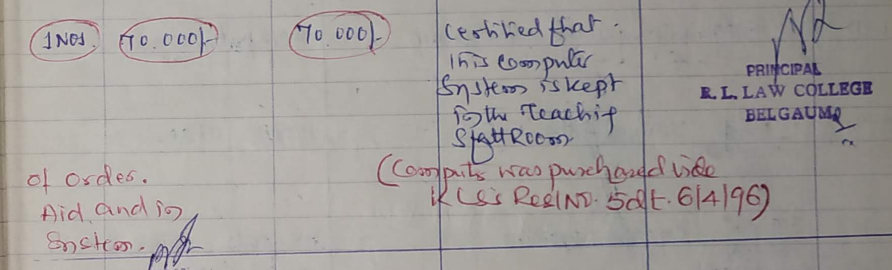 1 Nos. 70.000/- 70.000/-
Certified that
this computer
System is kept
in the Teaching
Staff Room
PRINCIPAL
R. L. LAW COLLEGE
BELGAUM
(Computer was purchased vide
KLS's Res/No. 5 dt. 6/4/96)
of order.
Aid and in
System.